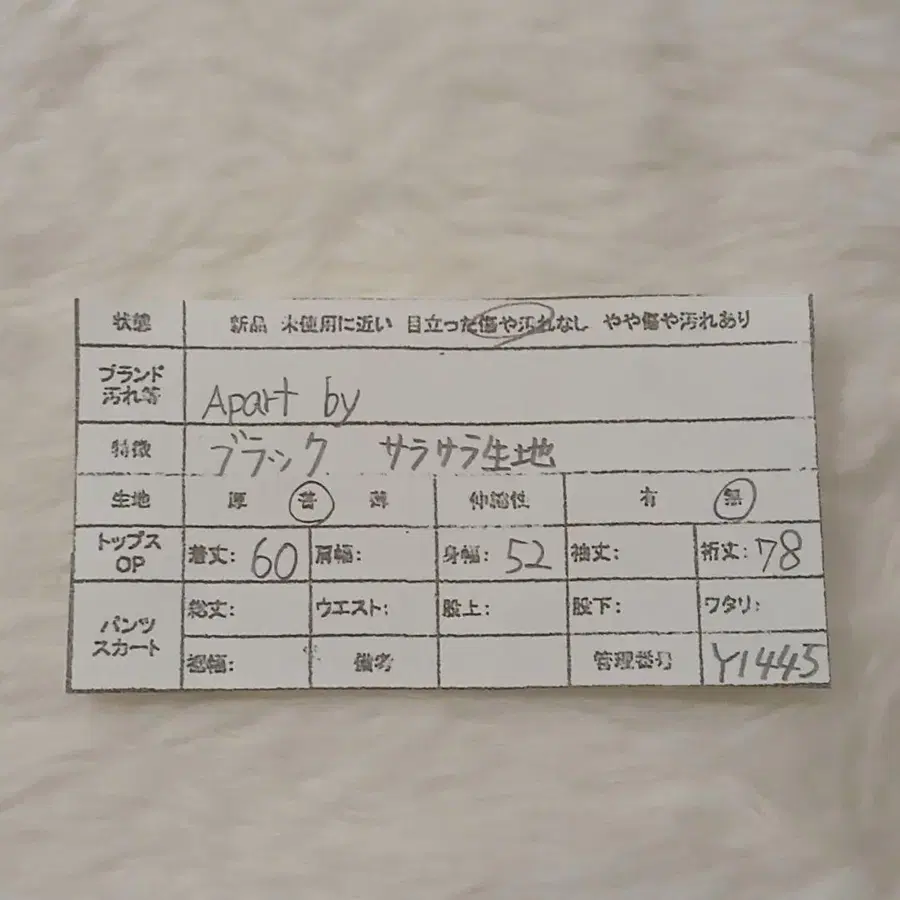 状態 新品 未使用に近い 目立った傷や汚れなし やや傷や汚れあり
ブランド
汚れ等
Apart by
特徴 ブラック サラサラ生地
生地 厚 普 薄 伸縮性 有 無
トップス
OP
着丈: 60 肩幅: 身幅: 52 袖丈: 裄丈: 78
パンツ
スカート
総丈: ウエスト: 股上: 股下: ワタリ:
裾幅: 備考 管理番号 Y1445